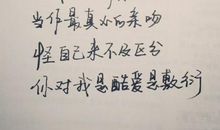 当作最真心的亲吻
怪自己来不及区分
你对我是酷爱是敷衍